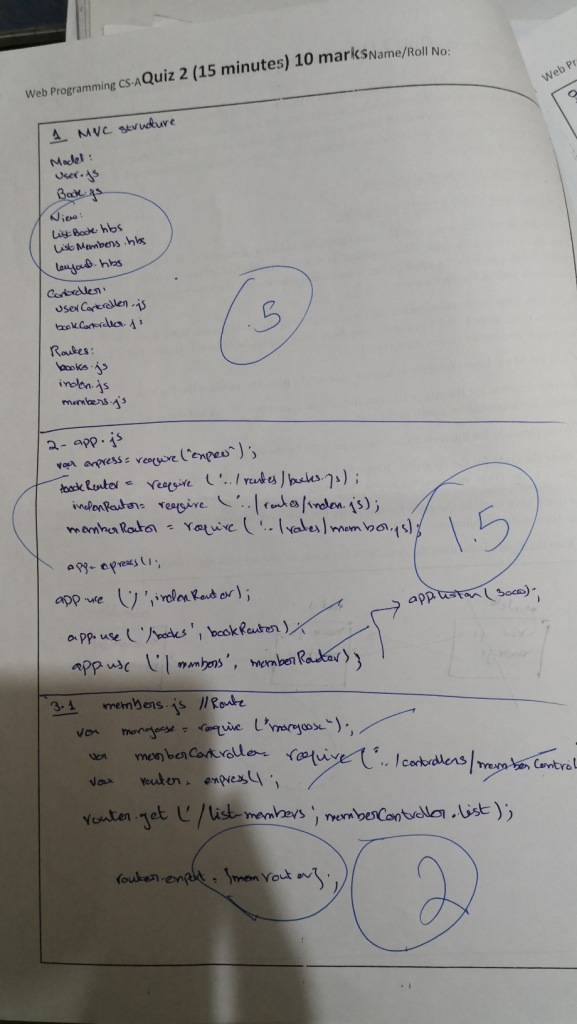 Web Programming CS-A Quiz 2 (15 minutes) 10 marks Name/Roll No:
Web Pr
1 MVC structure
Model:
User.js
Book.js
View:
ListBook.hbs
ListMembers.hbs
layout.hbs
Controller:
userController.js
bookController.js
.5
Routes:
books.js
index.js
members.js
2- app.js
var express = require("express");
bookRouter = require('../routes/books.js);
indexRouter = require('../routes/index.js);
memberRouter = require('../routes/member.js);
1.5
app = express();
app.use('/', indexRouter);
app.listen(3000);
app.use('/books', bookRouter);
app.use('/members', memberRouter);
3.1 members.js //Route
var mongoose = require("mongoose");
var memberController = require('../controllers/memberControl
var router = express();
router.get('/list-members', memberController.list);
router.export = {memrouter};
2